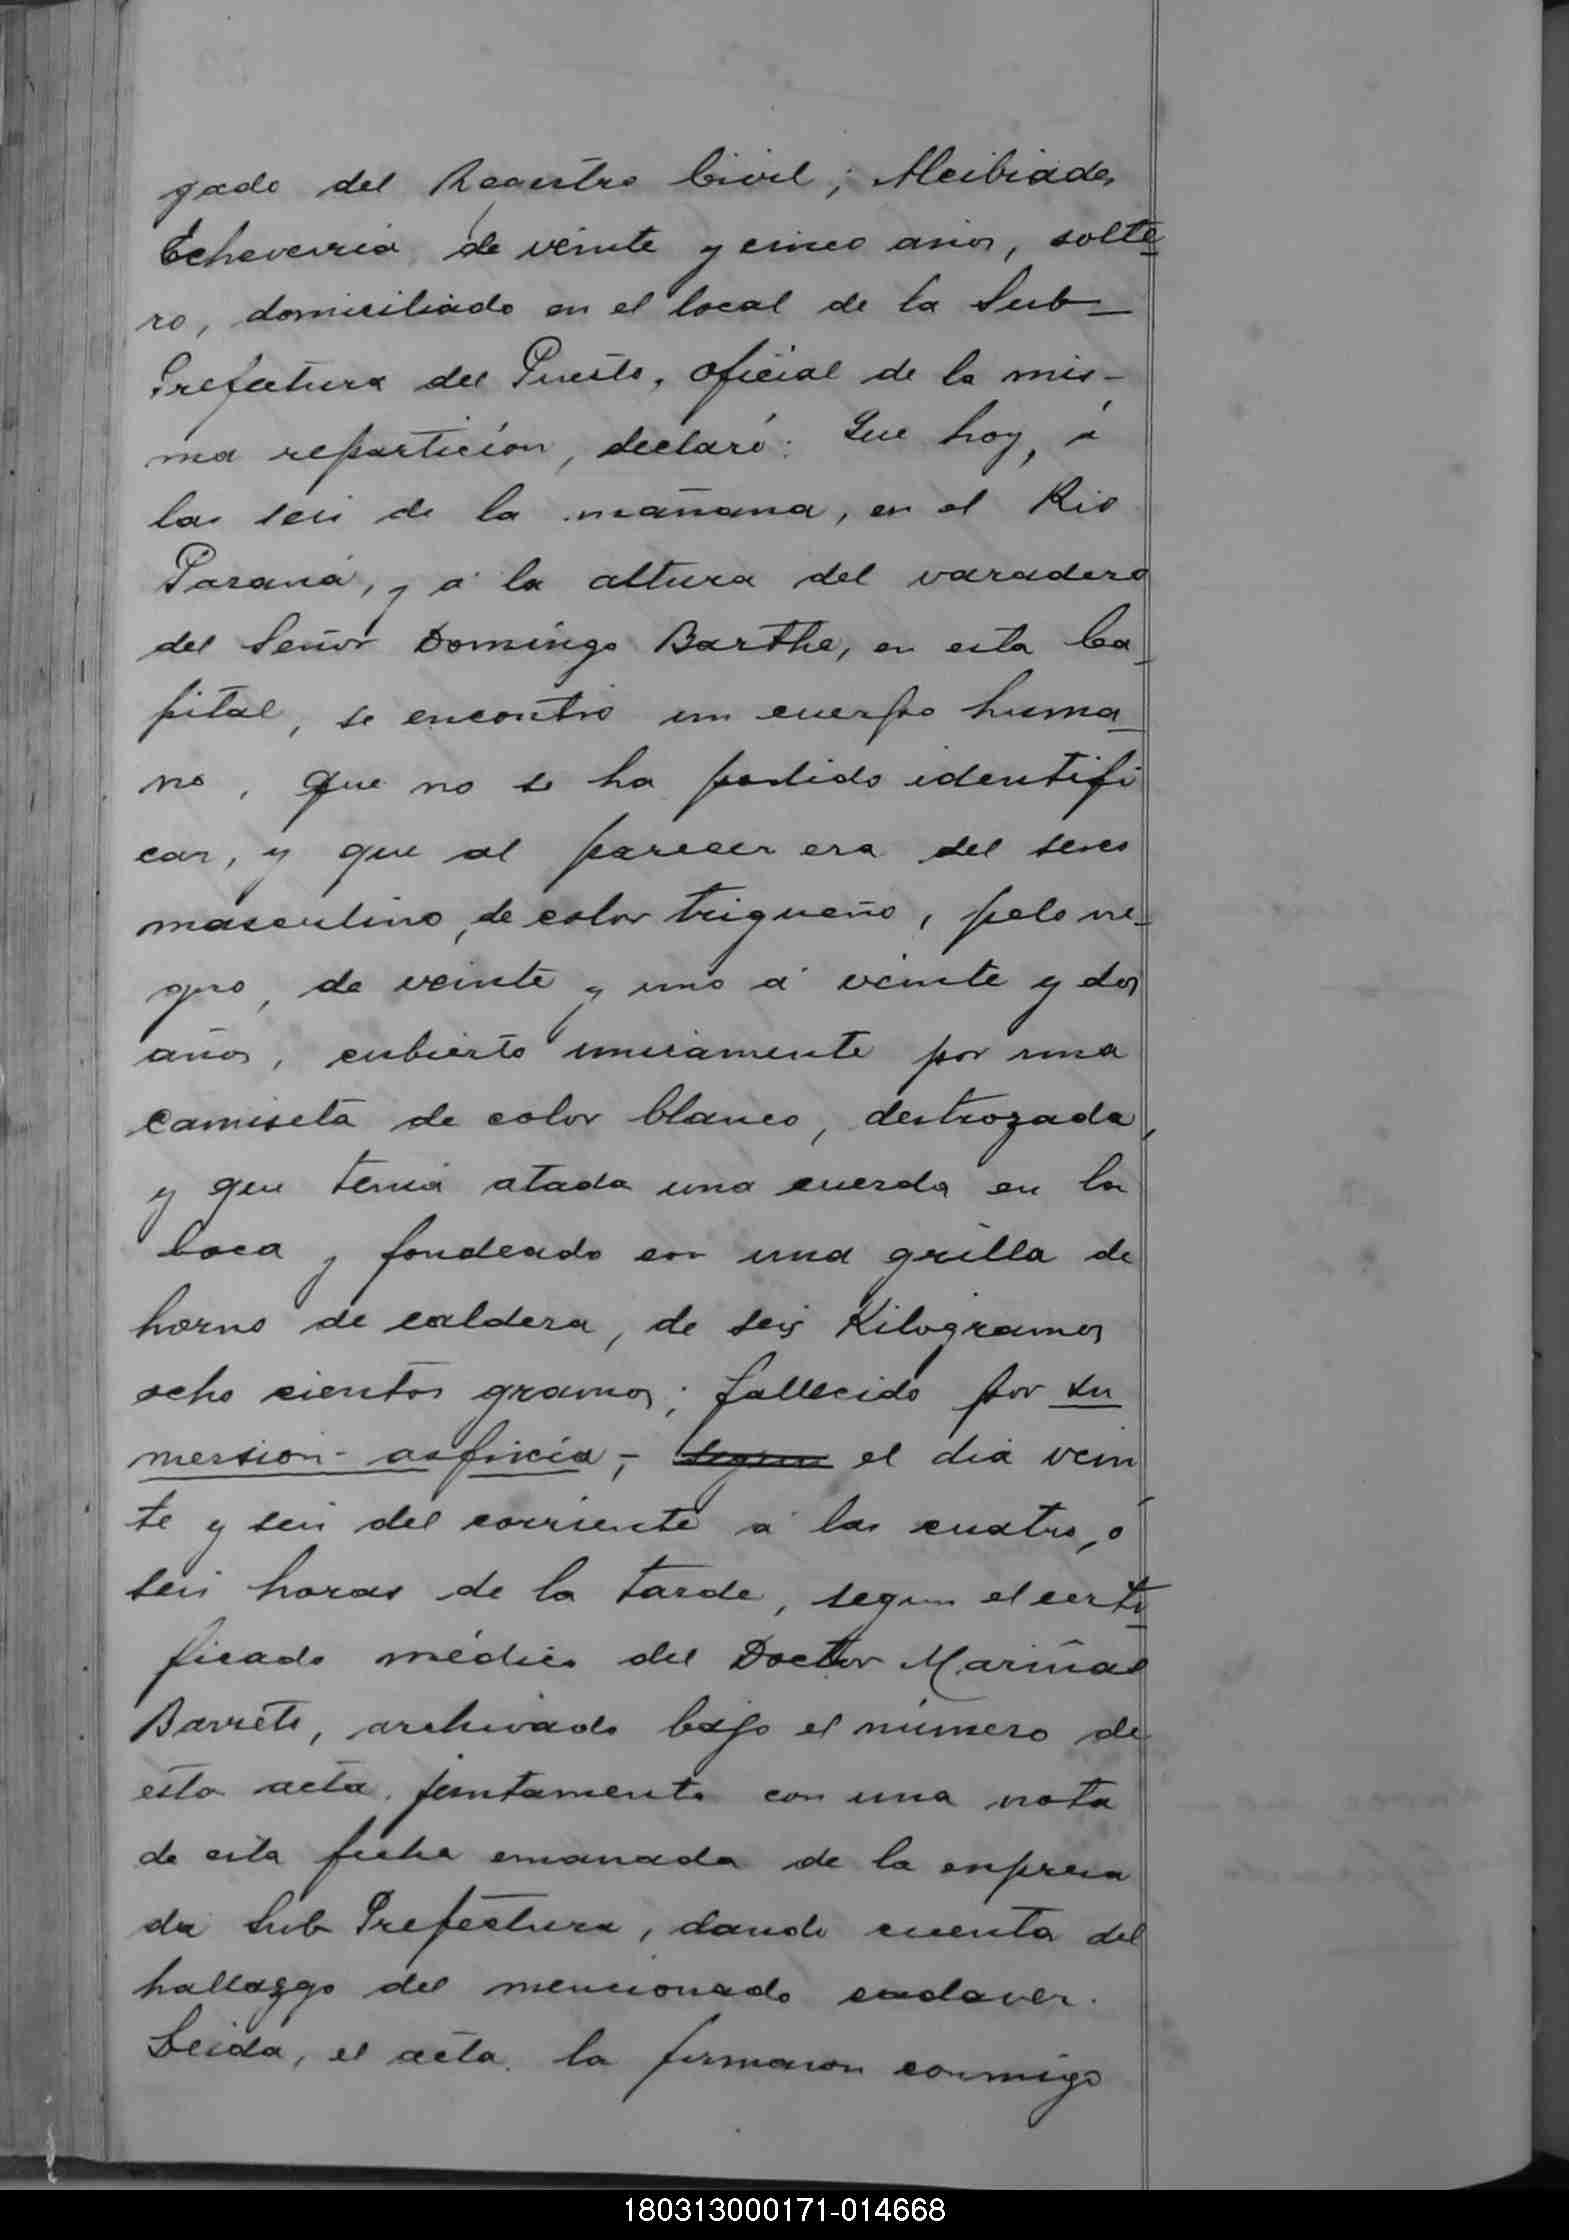 gado del Registro Civil; Alcibiades
Echeverria, de veinte y cinco años, solte
ro, domiciliado en el local de la Sub-
Prefectura del Puerto, oficial de la mis-
ma repartición, declaró: Que hoy, á
las seis de la mañana, en el Rio
Paraná, y á la altura del varadero
del Señor Domingo Barthe, en esta Ca-
pital, se encontró un cuerpo huma-
no, que no se ha podido identifi
car, y que al parecer era del sexo
masculino, de color trigueño, pelo ne-
gro, de veinte y uno á veinte y dos
años, cubierto unicamente por una
camiseta de color blanco, destrozada,
y que tenia atada una cuerda en la
boca y fondeado con una grilla de
horno de caldera, de seis Kilogramos
ocho cientos gramos; fallecido por su
mersion-asfixia, segun el dia vein
te y seis del corriente á las cuatro, ó
seis horas de la tarde, segun el certi
ficado médico del Doctor Mariñas
Barreto, archivado bajo el número de
esta acta, juntamente con una nota
de esta fecha emanada de la expresa
da Sub Prefectura, dando cuenta del
hallazgo del mencionado cadaver.
Leida, el acta, la firmaron conmigo
180313000171-014668